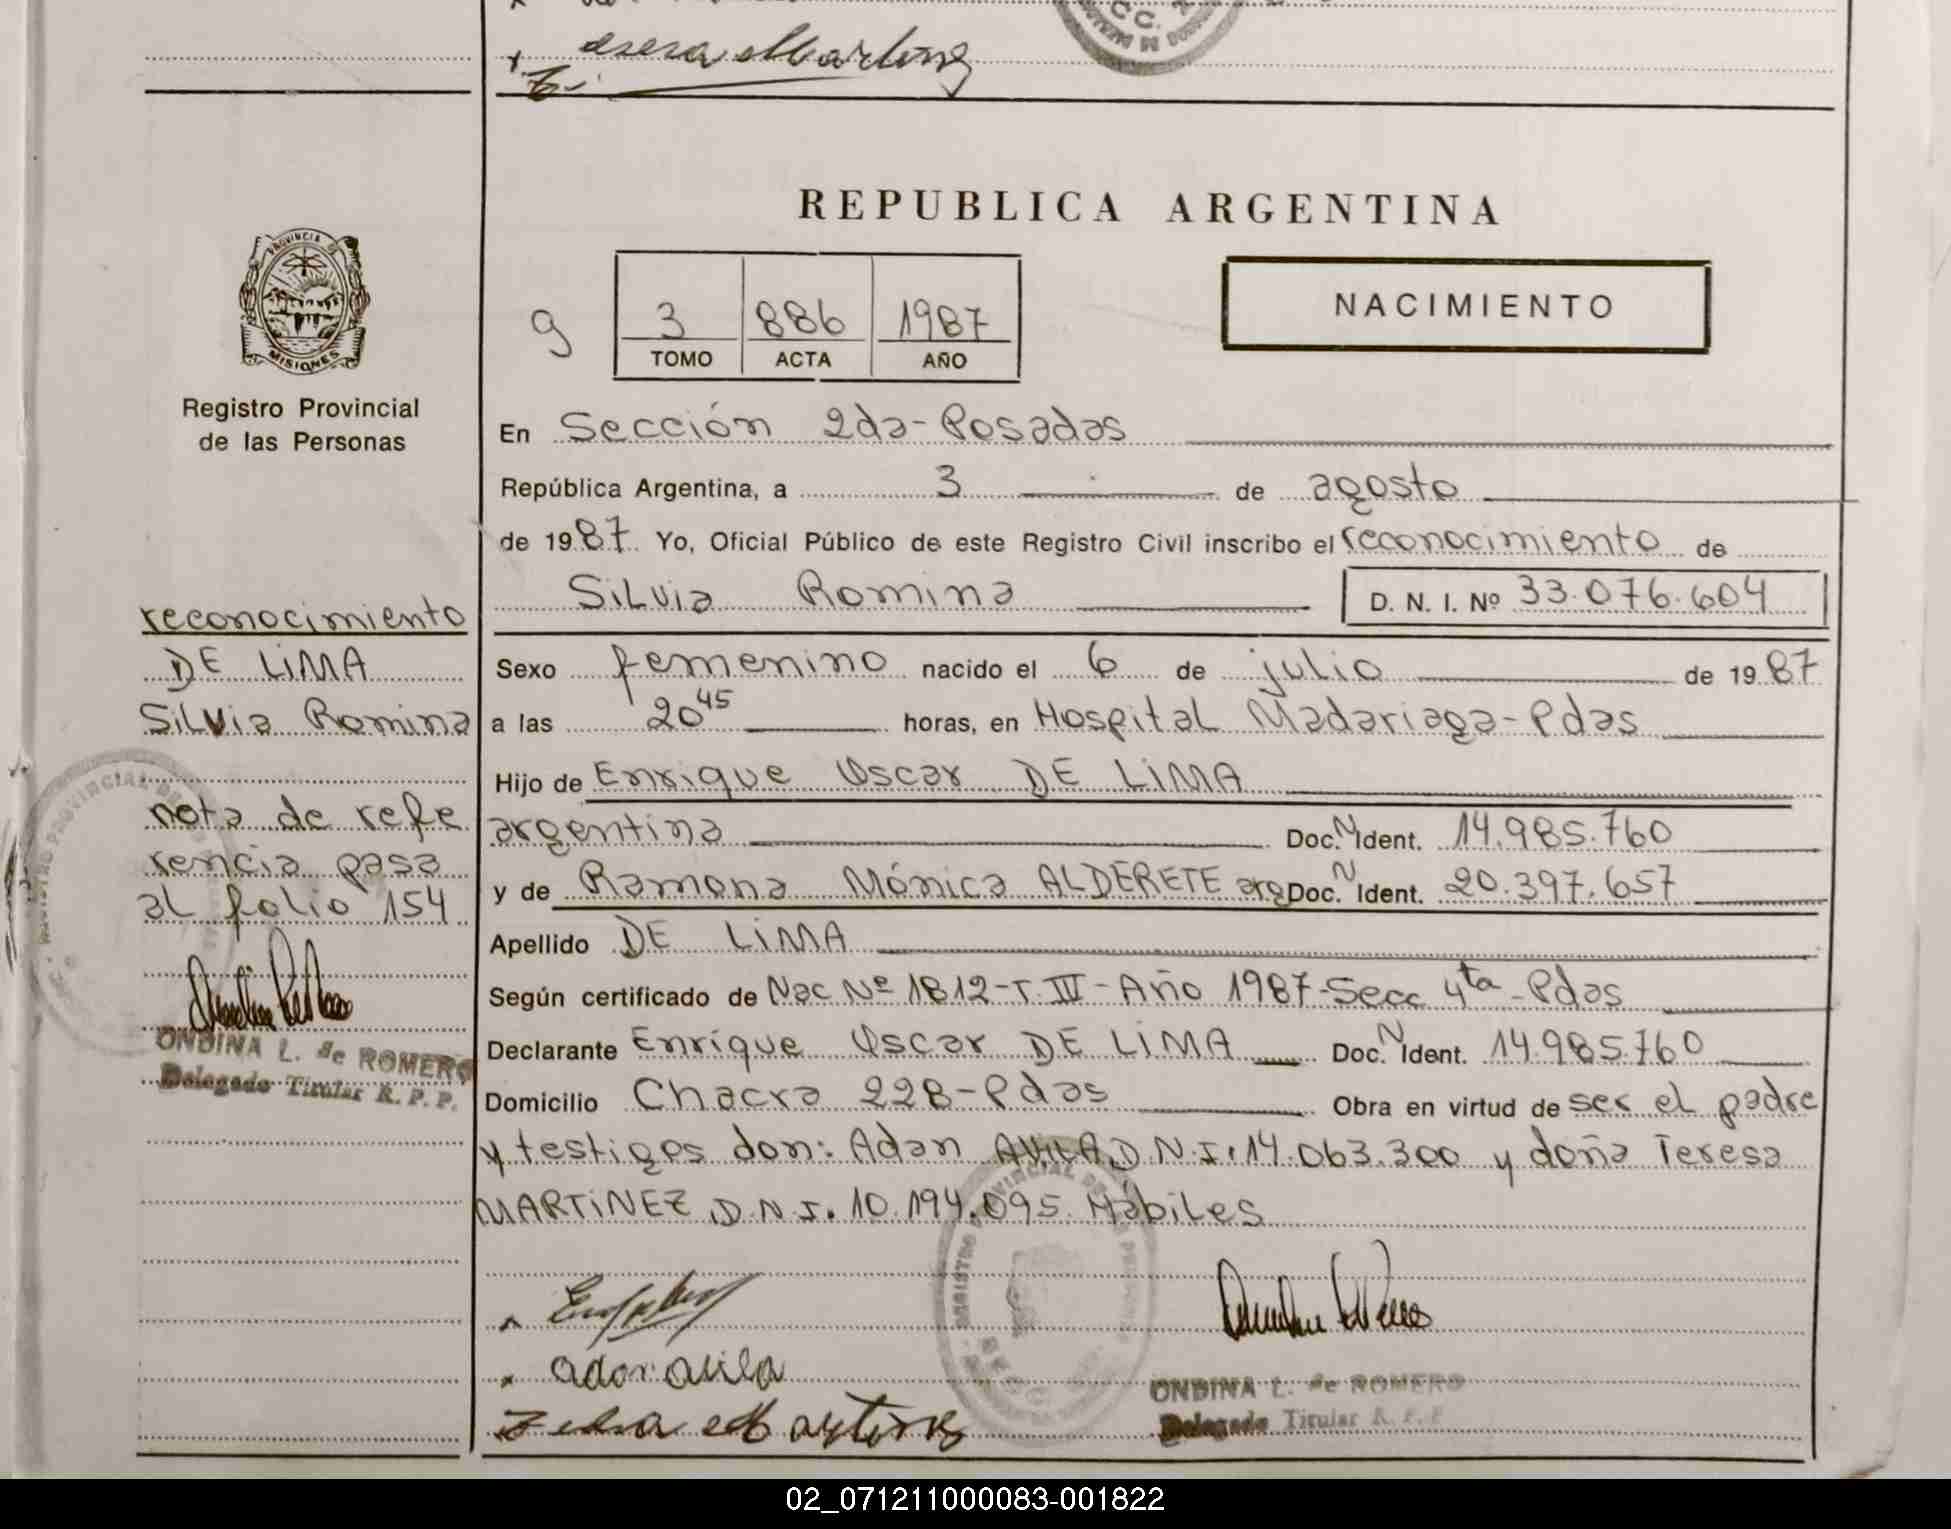 Teresa Martinez
REPUBLICA ARGENTINA
PROVINCIA DE
MISIONES
9
3 886 1987
TOMO ACTA AÑO
NACIMIENTO
Registro Provincial
de las Personas
En Sección 2da-Posadas
República Argentina, a 3 de agosto
de 1987 Yo, Oficial Público de este Registro Civil inscribo el reconocimiento de
Silvia Romina D. N. I. Nº 33.076.604
reconocimiento
DE LIMA
Silvia Romina
nota de refe
rencia pasa
al folio 154
ONDINA L. de ROMERO
Delegado Titular R. P. P.
Sexo femenino nacido el 6 de julio de 1987
a las 20 45 horas, en Hospital Madariaga-Pdas
Hijo de Enrique Oscar DE LIMA
argentina Doc. N Ident. 14.985.760
y de Ramona Mónica ALDERETE arg Doc. N Ident. 20.397.657
Apellido DE LIMA
Según certificado de Nac Nº 1812-T.III-Año 1987-Secc 4ta-Pdas
Declarante Enrique Oscar DE LIMA Doc. N Ident. 14.985.760
Domicilio Chacra 228-Pdas Obra en virtud de ser el padre
y testigos don: Adan AVILA D.N.I. 14.063.300 y doña Teresa
MARTINEZ D.N.I. 10.194.095 Hábiles
adan avila
Teresa Martinez
ONDINA L. de ROMERO
Delegado Titular R. P. P.
02_071211000083-001822